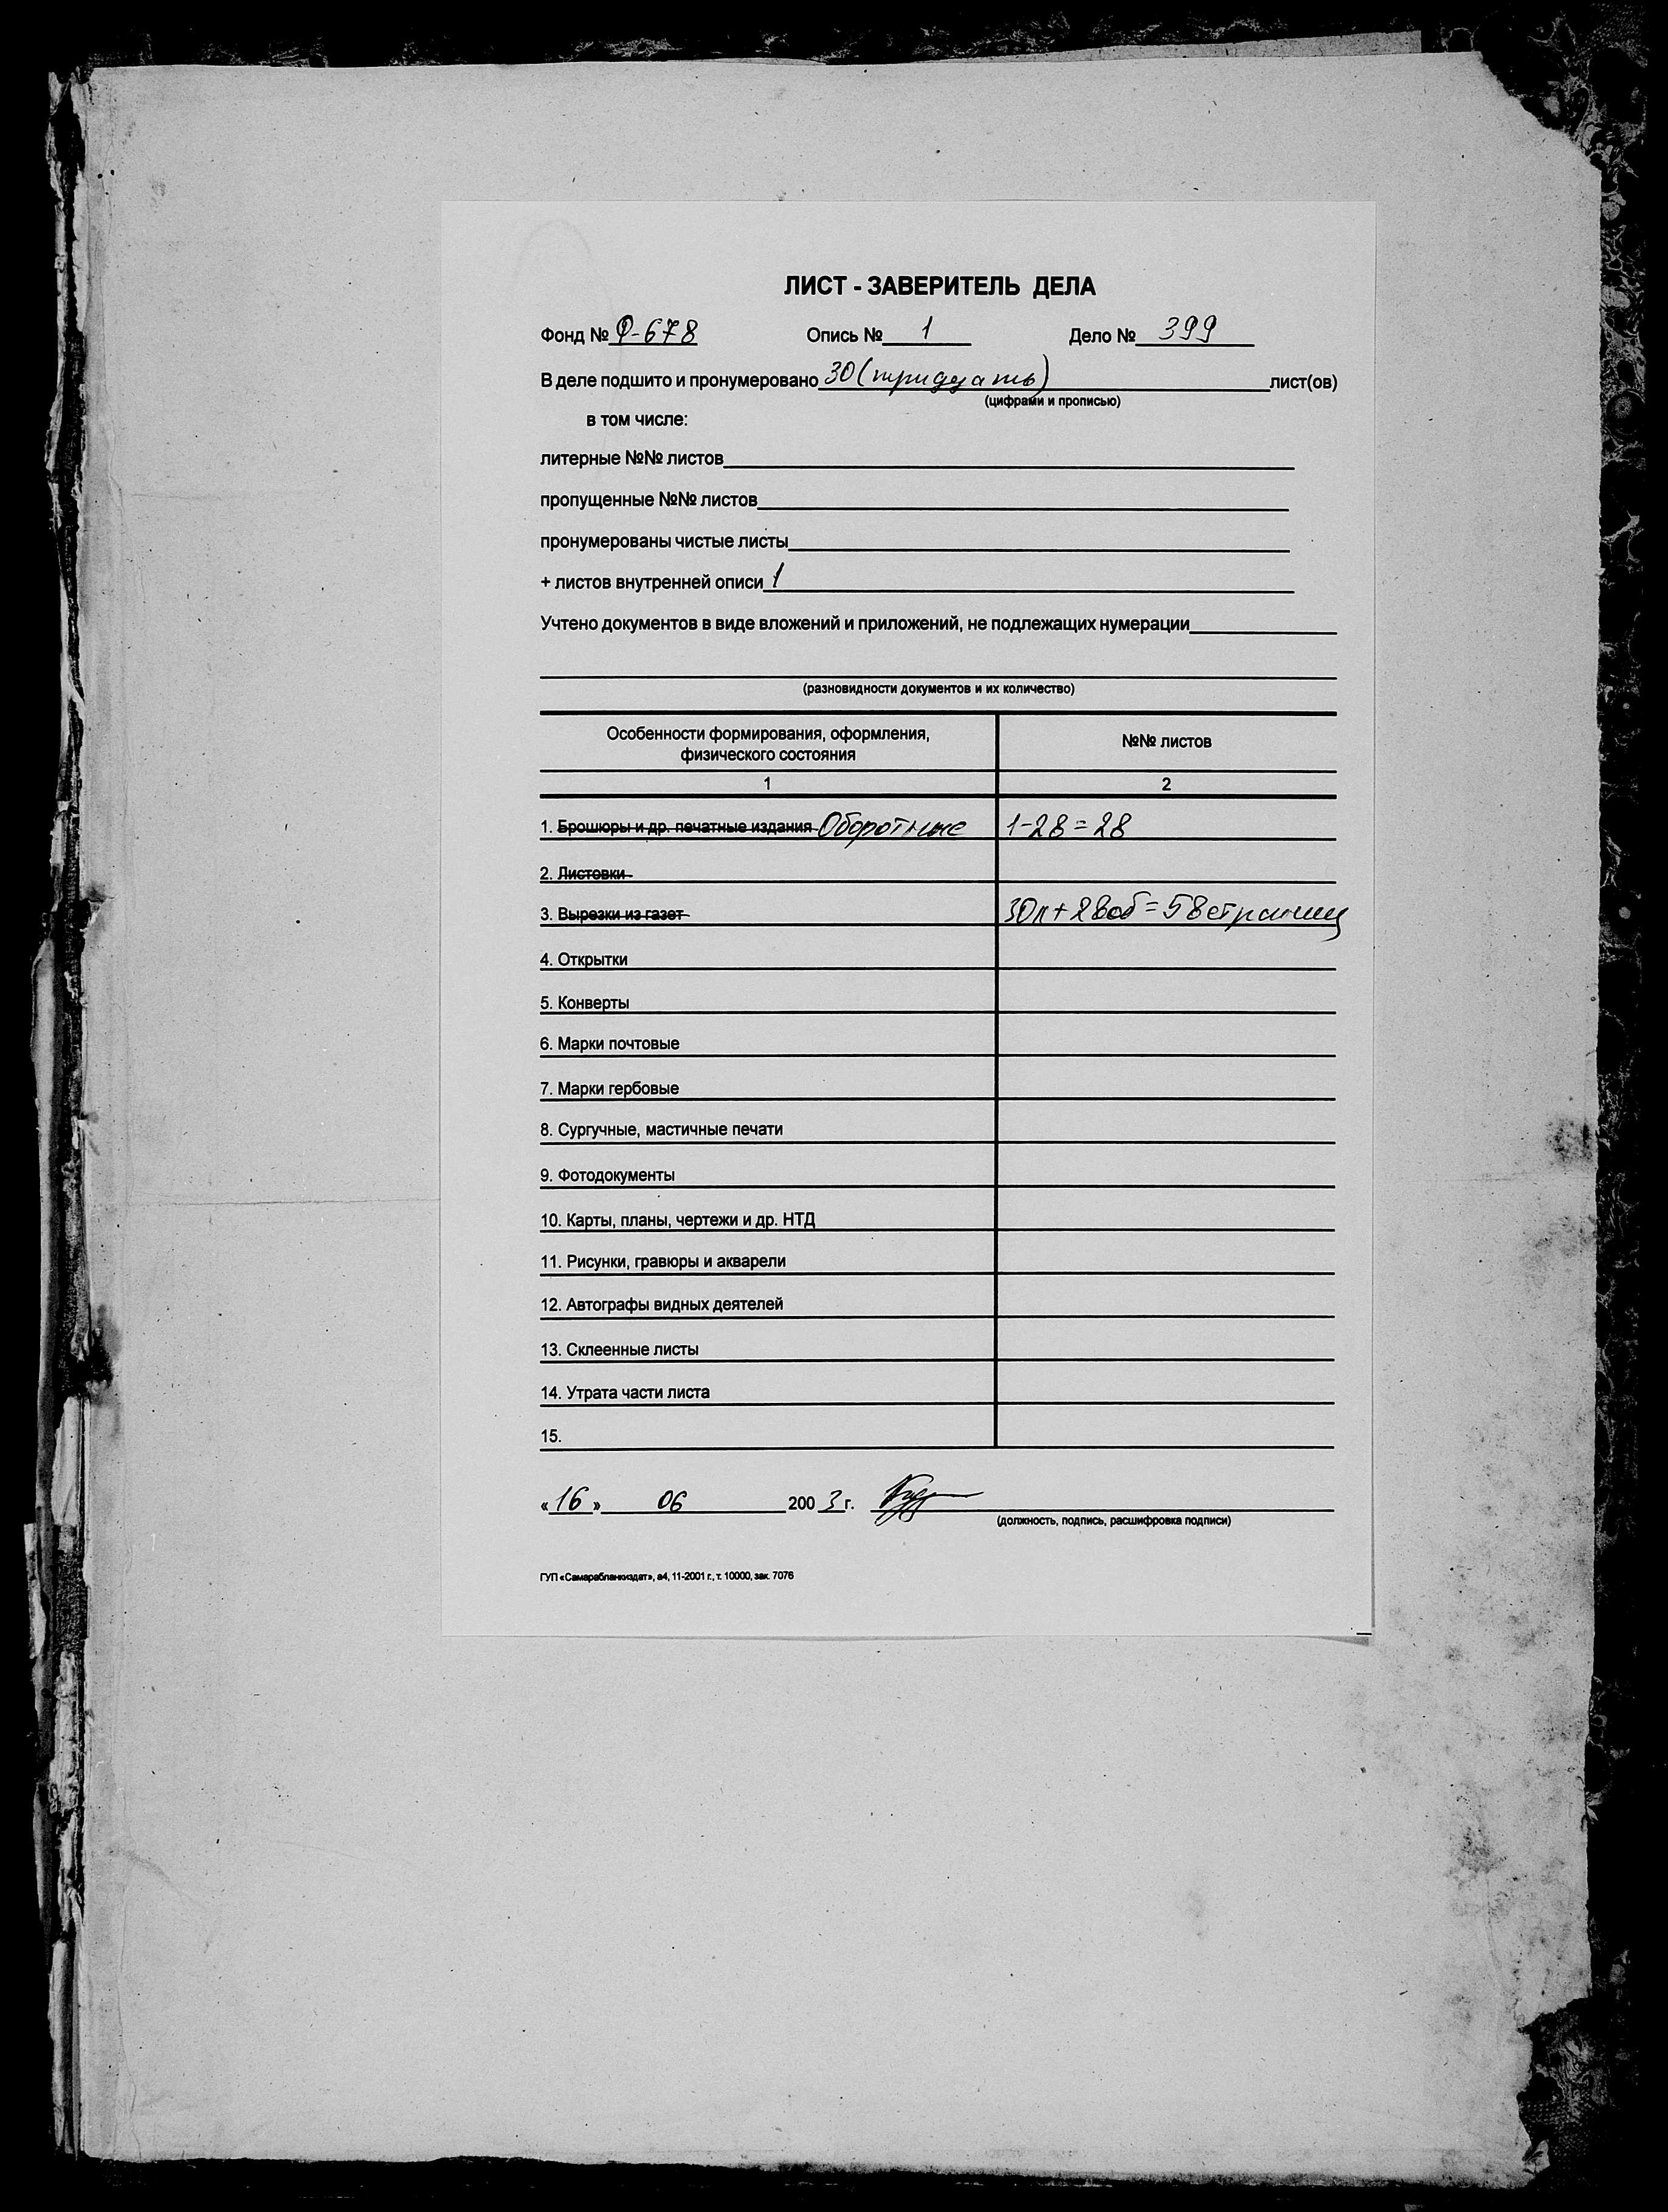 ЛИСТ - ЗАВЕРИТЕЛЬ ДЕЛА
Фонд № Ф-678 Опись № 1 Дело № 399
В деле подшито и пронумеровано 30 (тридцать) лист(ов)
(цифрами и прописью)
в том числе:
литерные №№ листов
пропущенные №№ листов
пронумерованы чистые листы
+ листов внутренней описи 1
Учтено документов в виде вложений и приложений, не подлежащих нумерации
(разновидности документов и их количество)
Особенности формирования, оформления,
физического состояния
№№ листов
1 2
1. Брошюры и др. печатные издания Оборотные 1-28=28
2. Листовки
3. Вырезки из газет 30л+28об=58страниц
4. Открытки
5. Конверты
6. Марки почтовые
7. Марки гербовые
8. Сургучные, мастичные печати
9. Фотодокументы
10. Карты, планы, чертежи и др. НТД
11. Рисунки, гравюры и акварели
12. Автографы видных деятелей
13. Склеенные листы
14. Утрата части листа
15.
«16» 06 2003 г.
(должность, подпись, расшифровка подписи)
ГУП «Самарабланкиздат», а4, 11-2001 г., т. 10000, зак. 7076